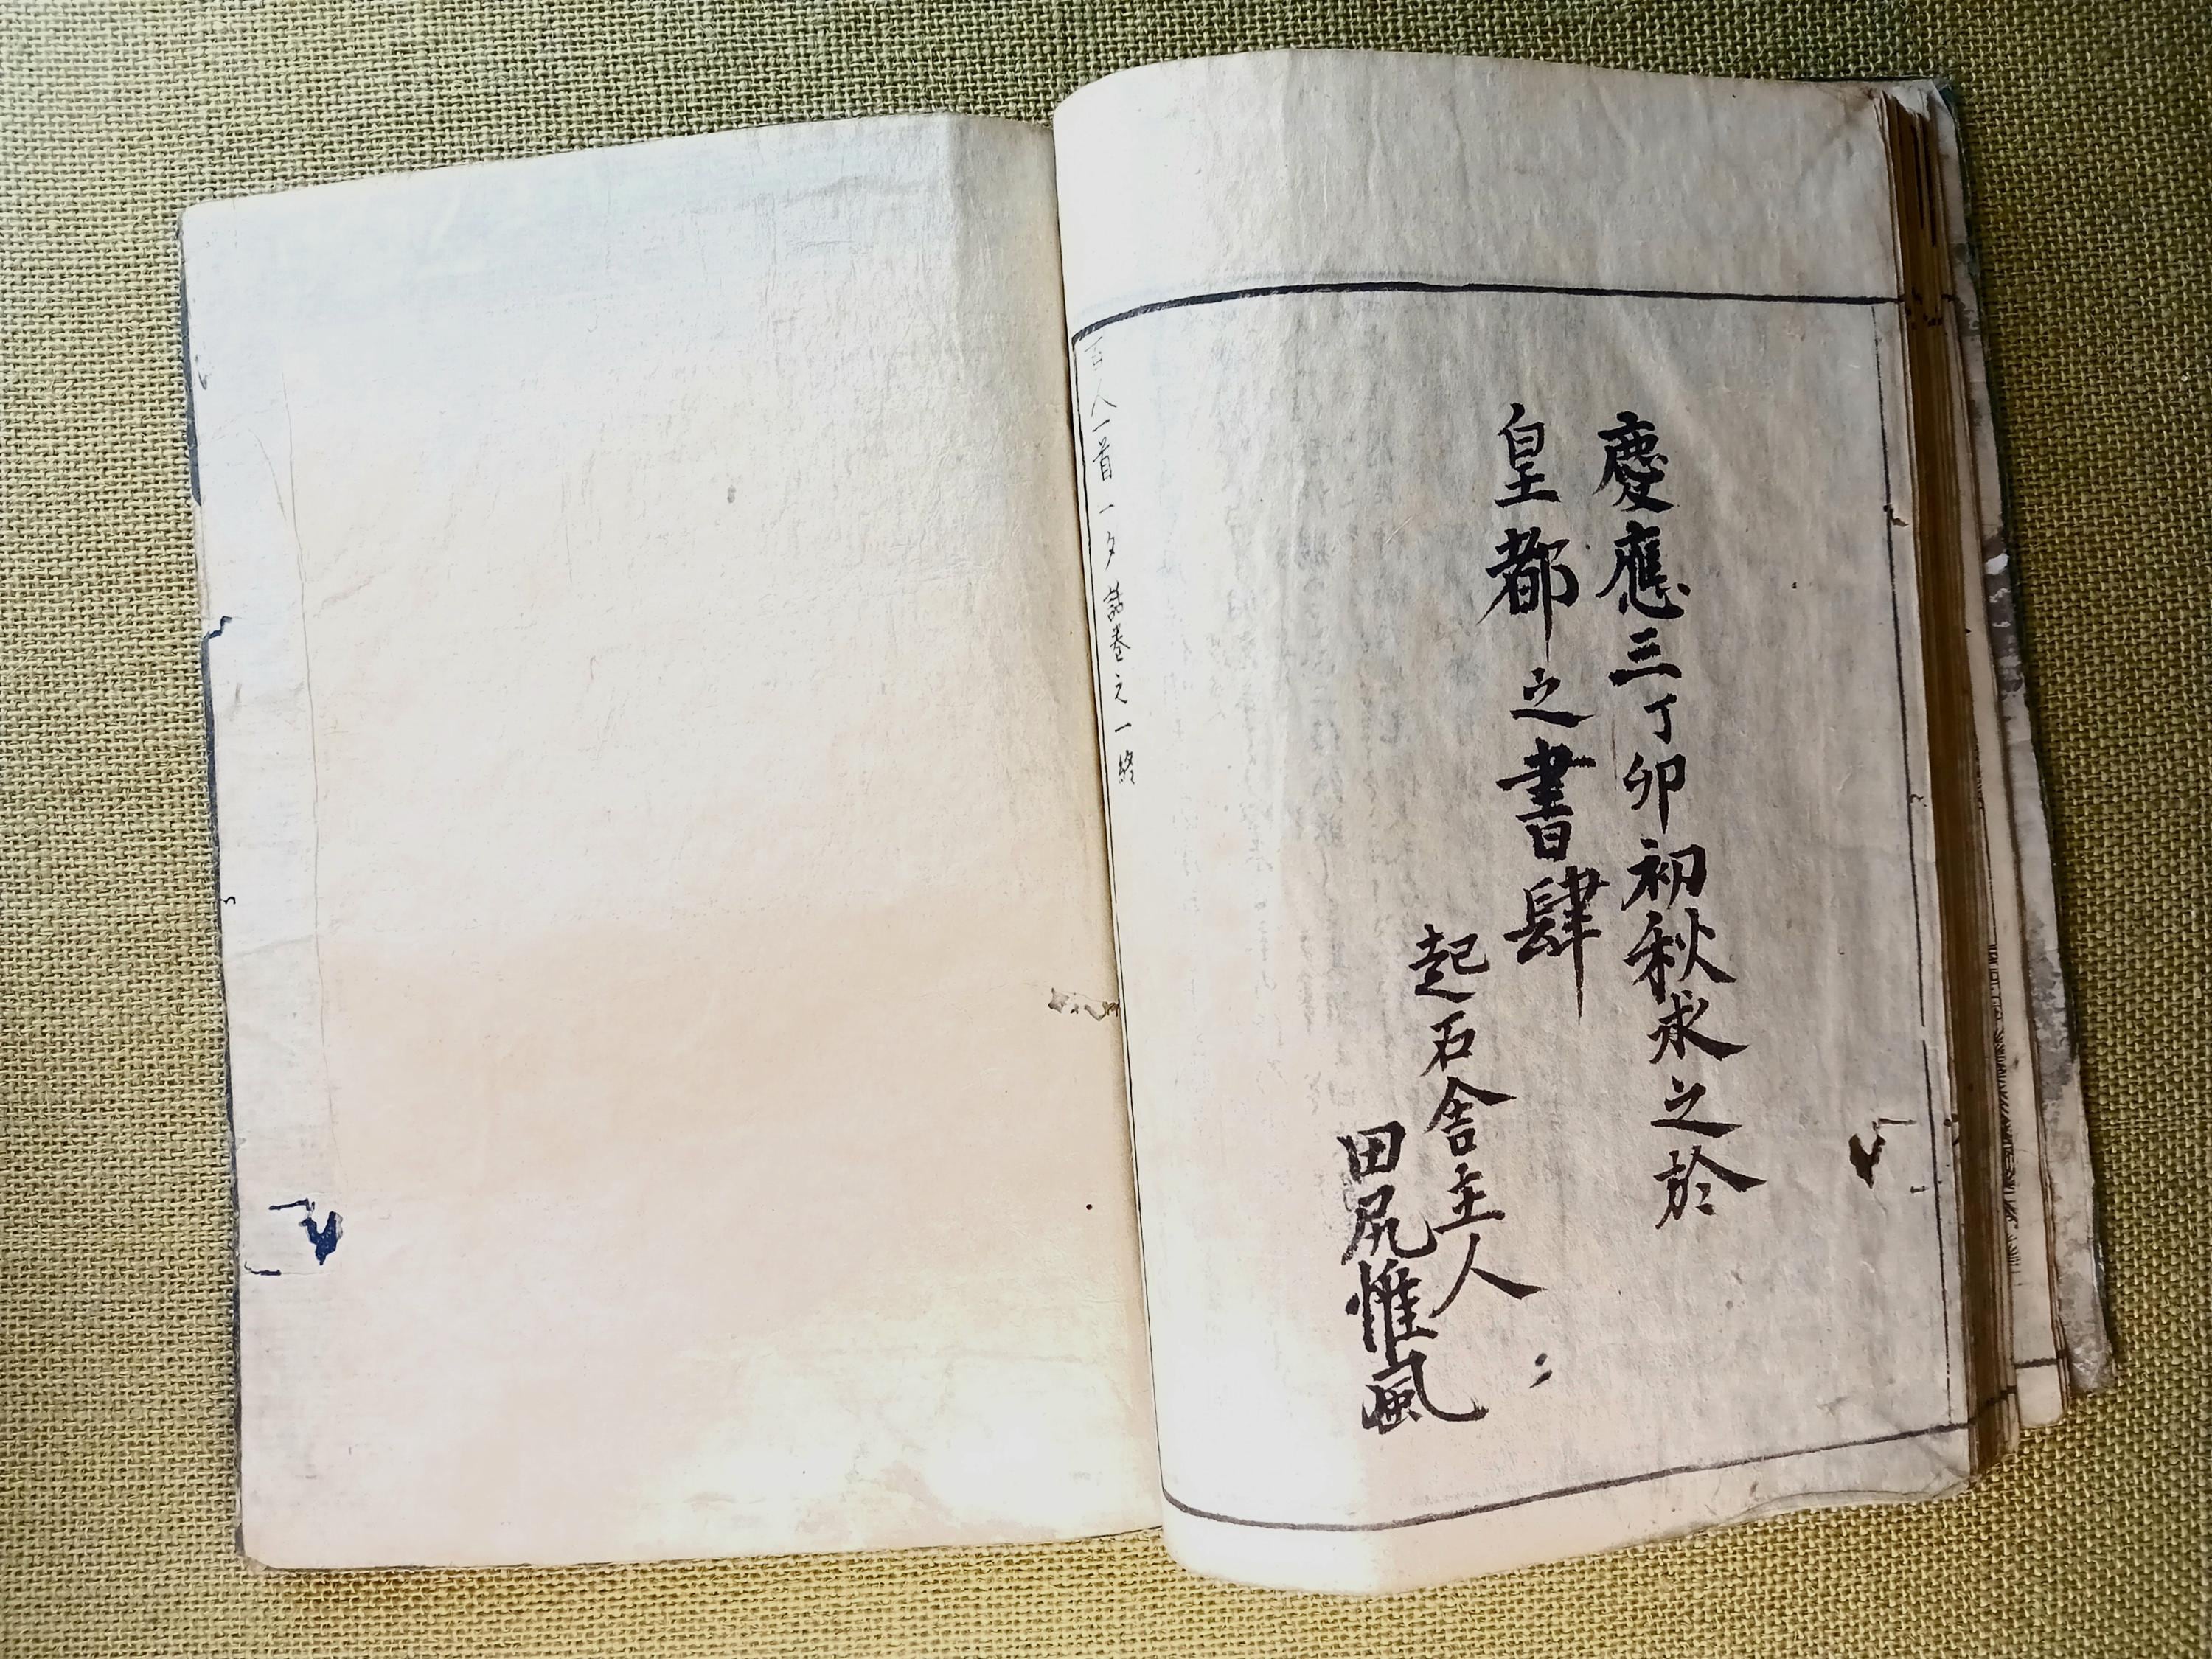 慶應三丁卯初秋求之於
皇都之書肆
起石舎主人
田尻惟風
百人一首一夕話巻之一終